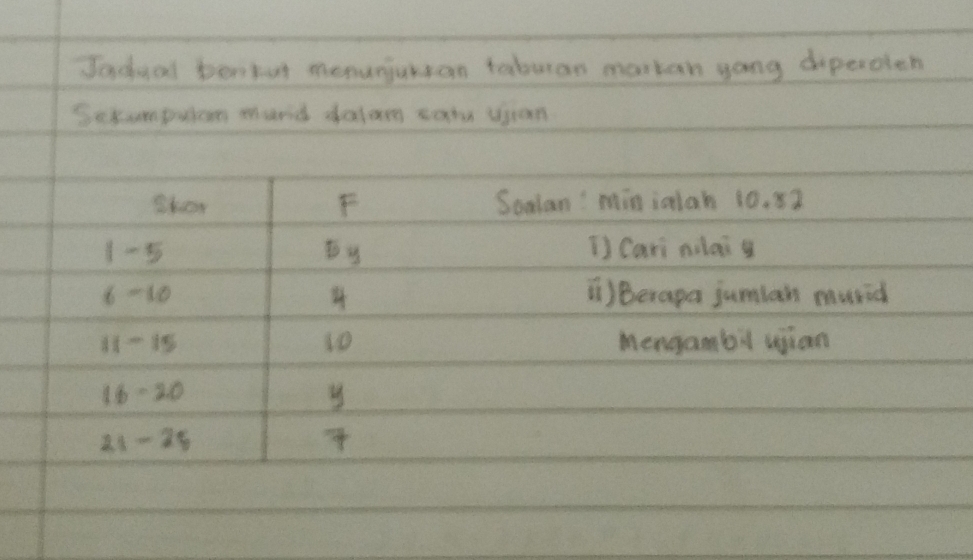 Jadual berikut menunjukkan taburan markah yang diperoleh
Sekumpulan murid dalam satu ujian.
Skor F Soalan : min ialah 10.82
1-5 5y i) Cari nilai y
6-10 4 ii) Berapa jumlah murid
11-15 10 Mengambil ujian
16-20 y
21-25 7